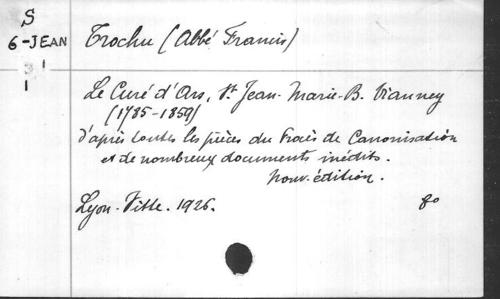 S
6-JEAN Trochu (Abbé Francis)
3
1
Le Curé d'Ars, St Jean-Marie-B. Vianney
(1785-1859)
d'après toutes les pièces du Procès de Canonisation
et de nombreux documents inédits.
Nouv. édition.
Lyon-Vitte. 1926. 8o